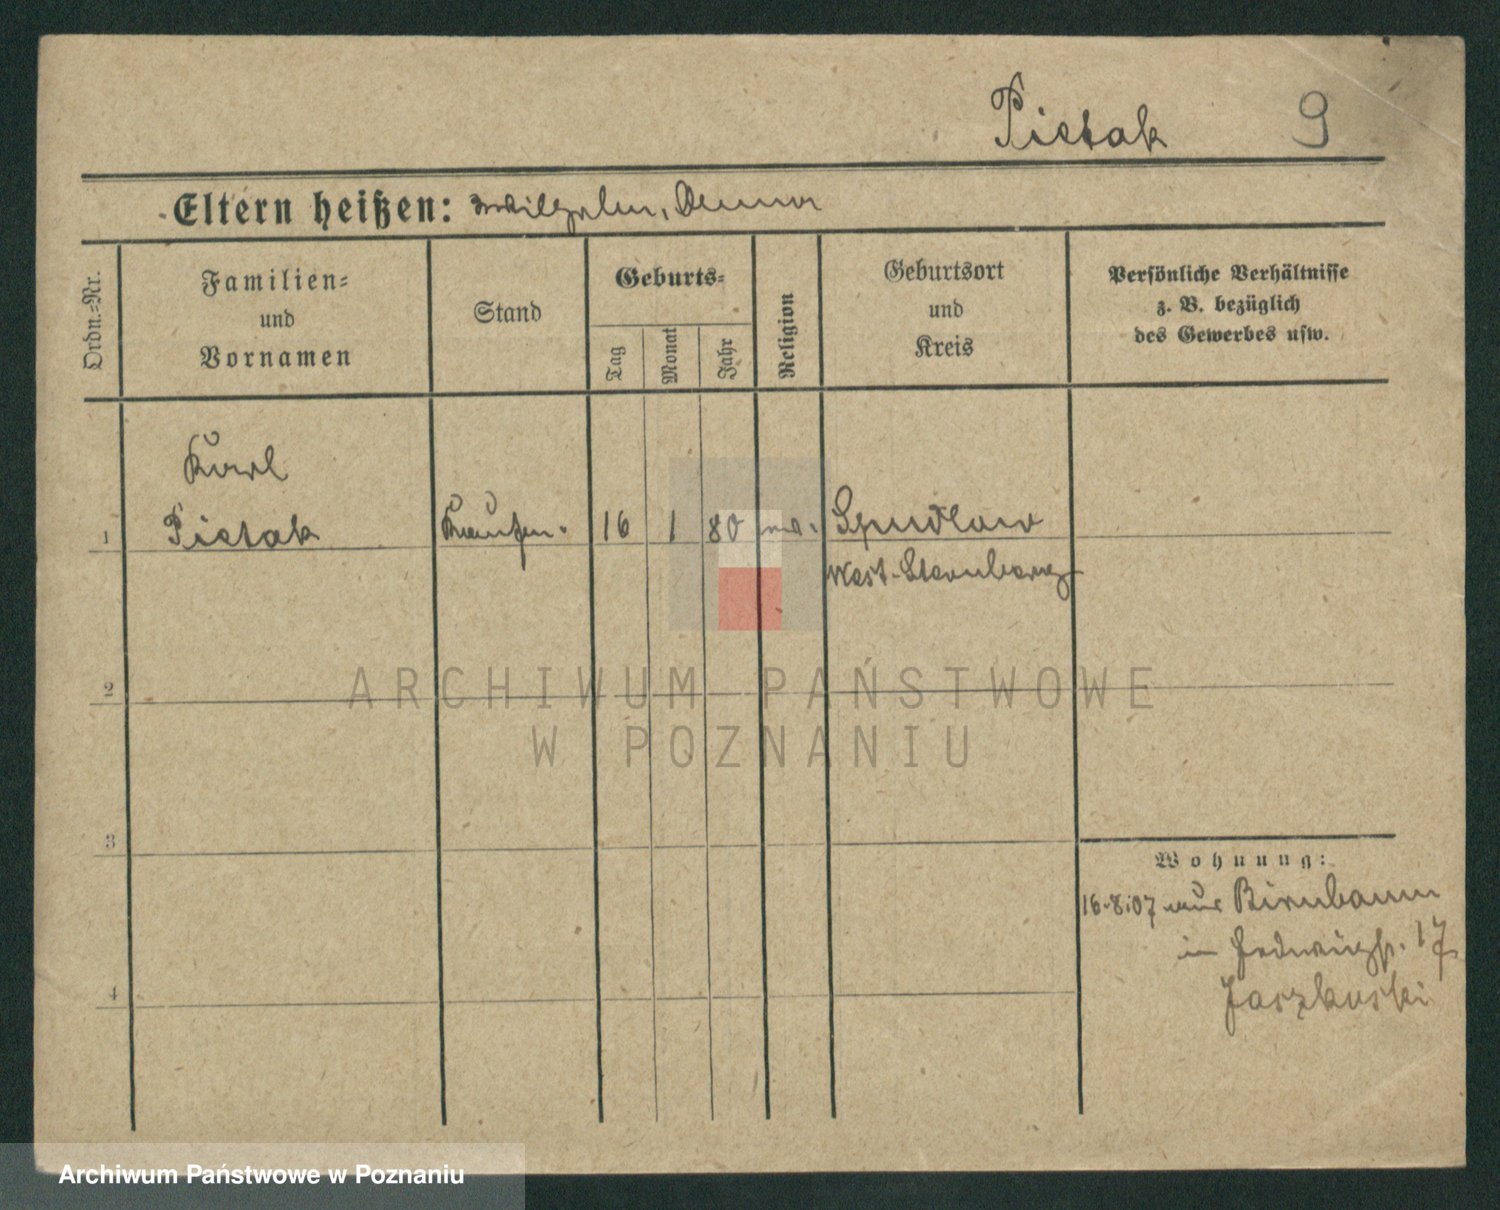 Pietak 9
Eltern heißen: Wilhelm, Anna
Ordn.-Nr.
Familien-
und
Vornamen
Stand
Geburts-
Tag
Monat
Jahr
Religion
Geburtsort
und
Kreis
Persönliche Verhältnisse
z. B. bezüglich
des Gewerbes usw.
Karl
1 Pietak 16 1 80 Spudlow
West-Sternberg
ARCHIWUM PAŃSTWOWE
W POZNANIU
2
3
Wohnung:
16.8.07 aus Birnbaum
in Hedwigstr. 17
Jaszkuski
4
Archiwum Państwowe w Poznaniu